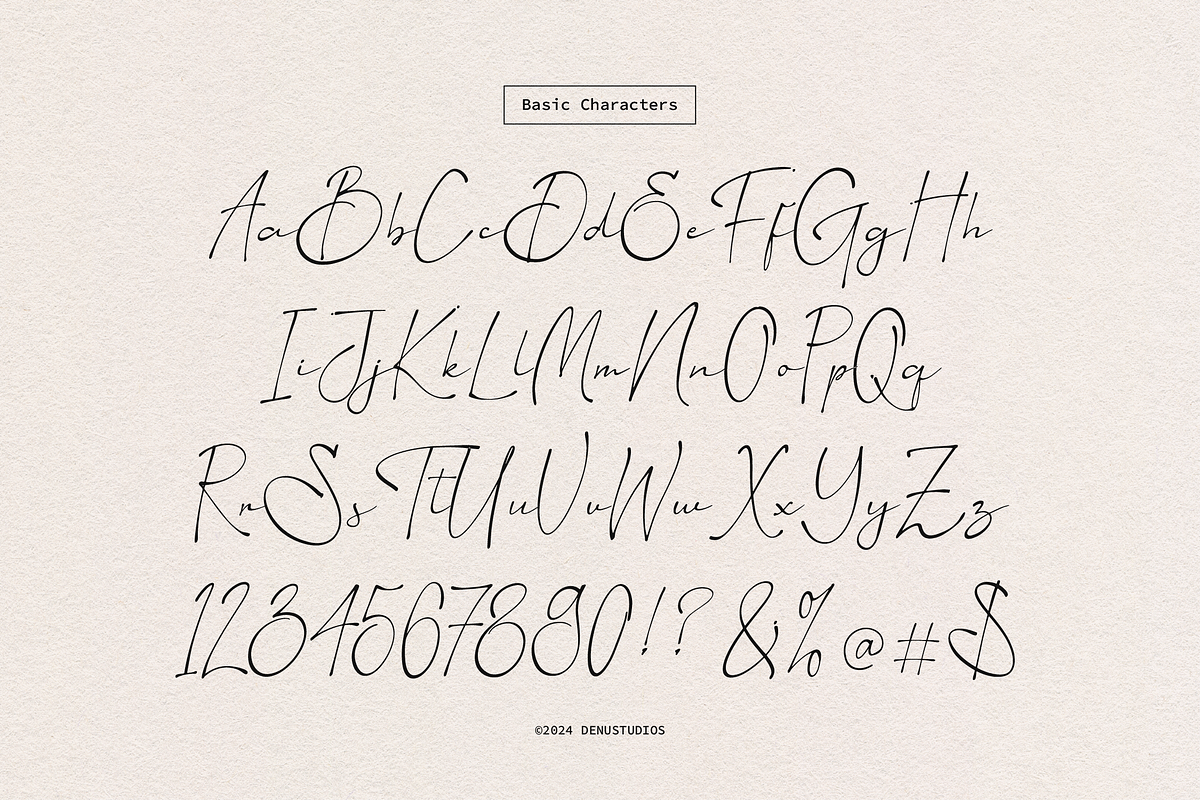 Basic Characters
AaBbCcDdEeFfGgHh
IiJjKkLlMmNnOoPpQq
RrSsTtUuVvWwXxYyZz
1234567890!? &%@#$
©2024 DENUSTUDIOS